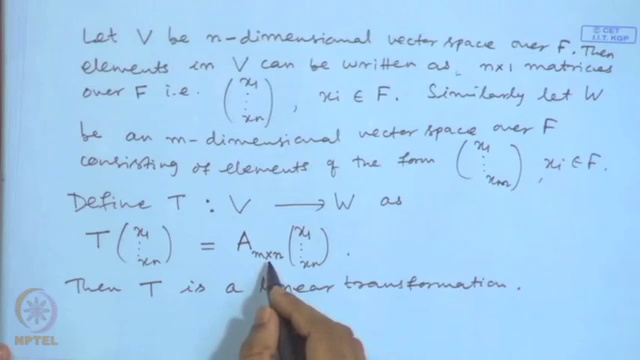 © CET
I.I.T. KGP
Let V be n-dimensional vector space over F. Then
elements in V can be written as, n×1 matrices
over F i.e. (x1 ⋮ xn), xi ∈ F. Similarly let W
be an m-dimensional vector space over F
consisting of elements of the form (x1 ⋮ xm), xi ∈ F.
Define T : V ⟶ W as
T (x1 ⋮ xn) = A m×n (x1 ⋮ xn).
Then T is a linear transformation.
NPTEL